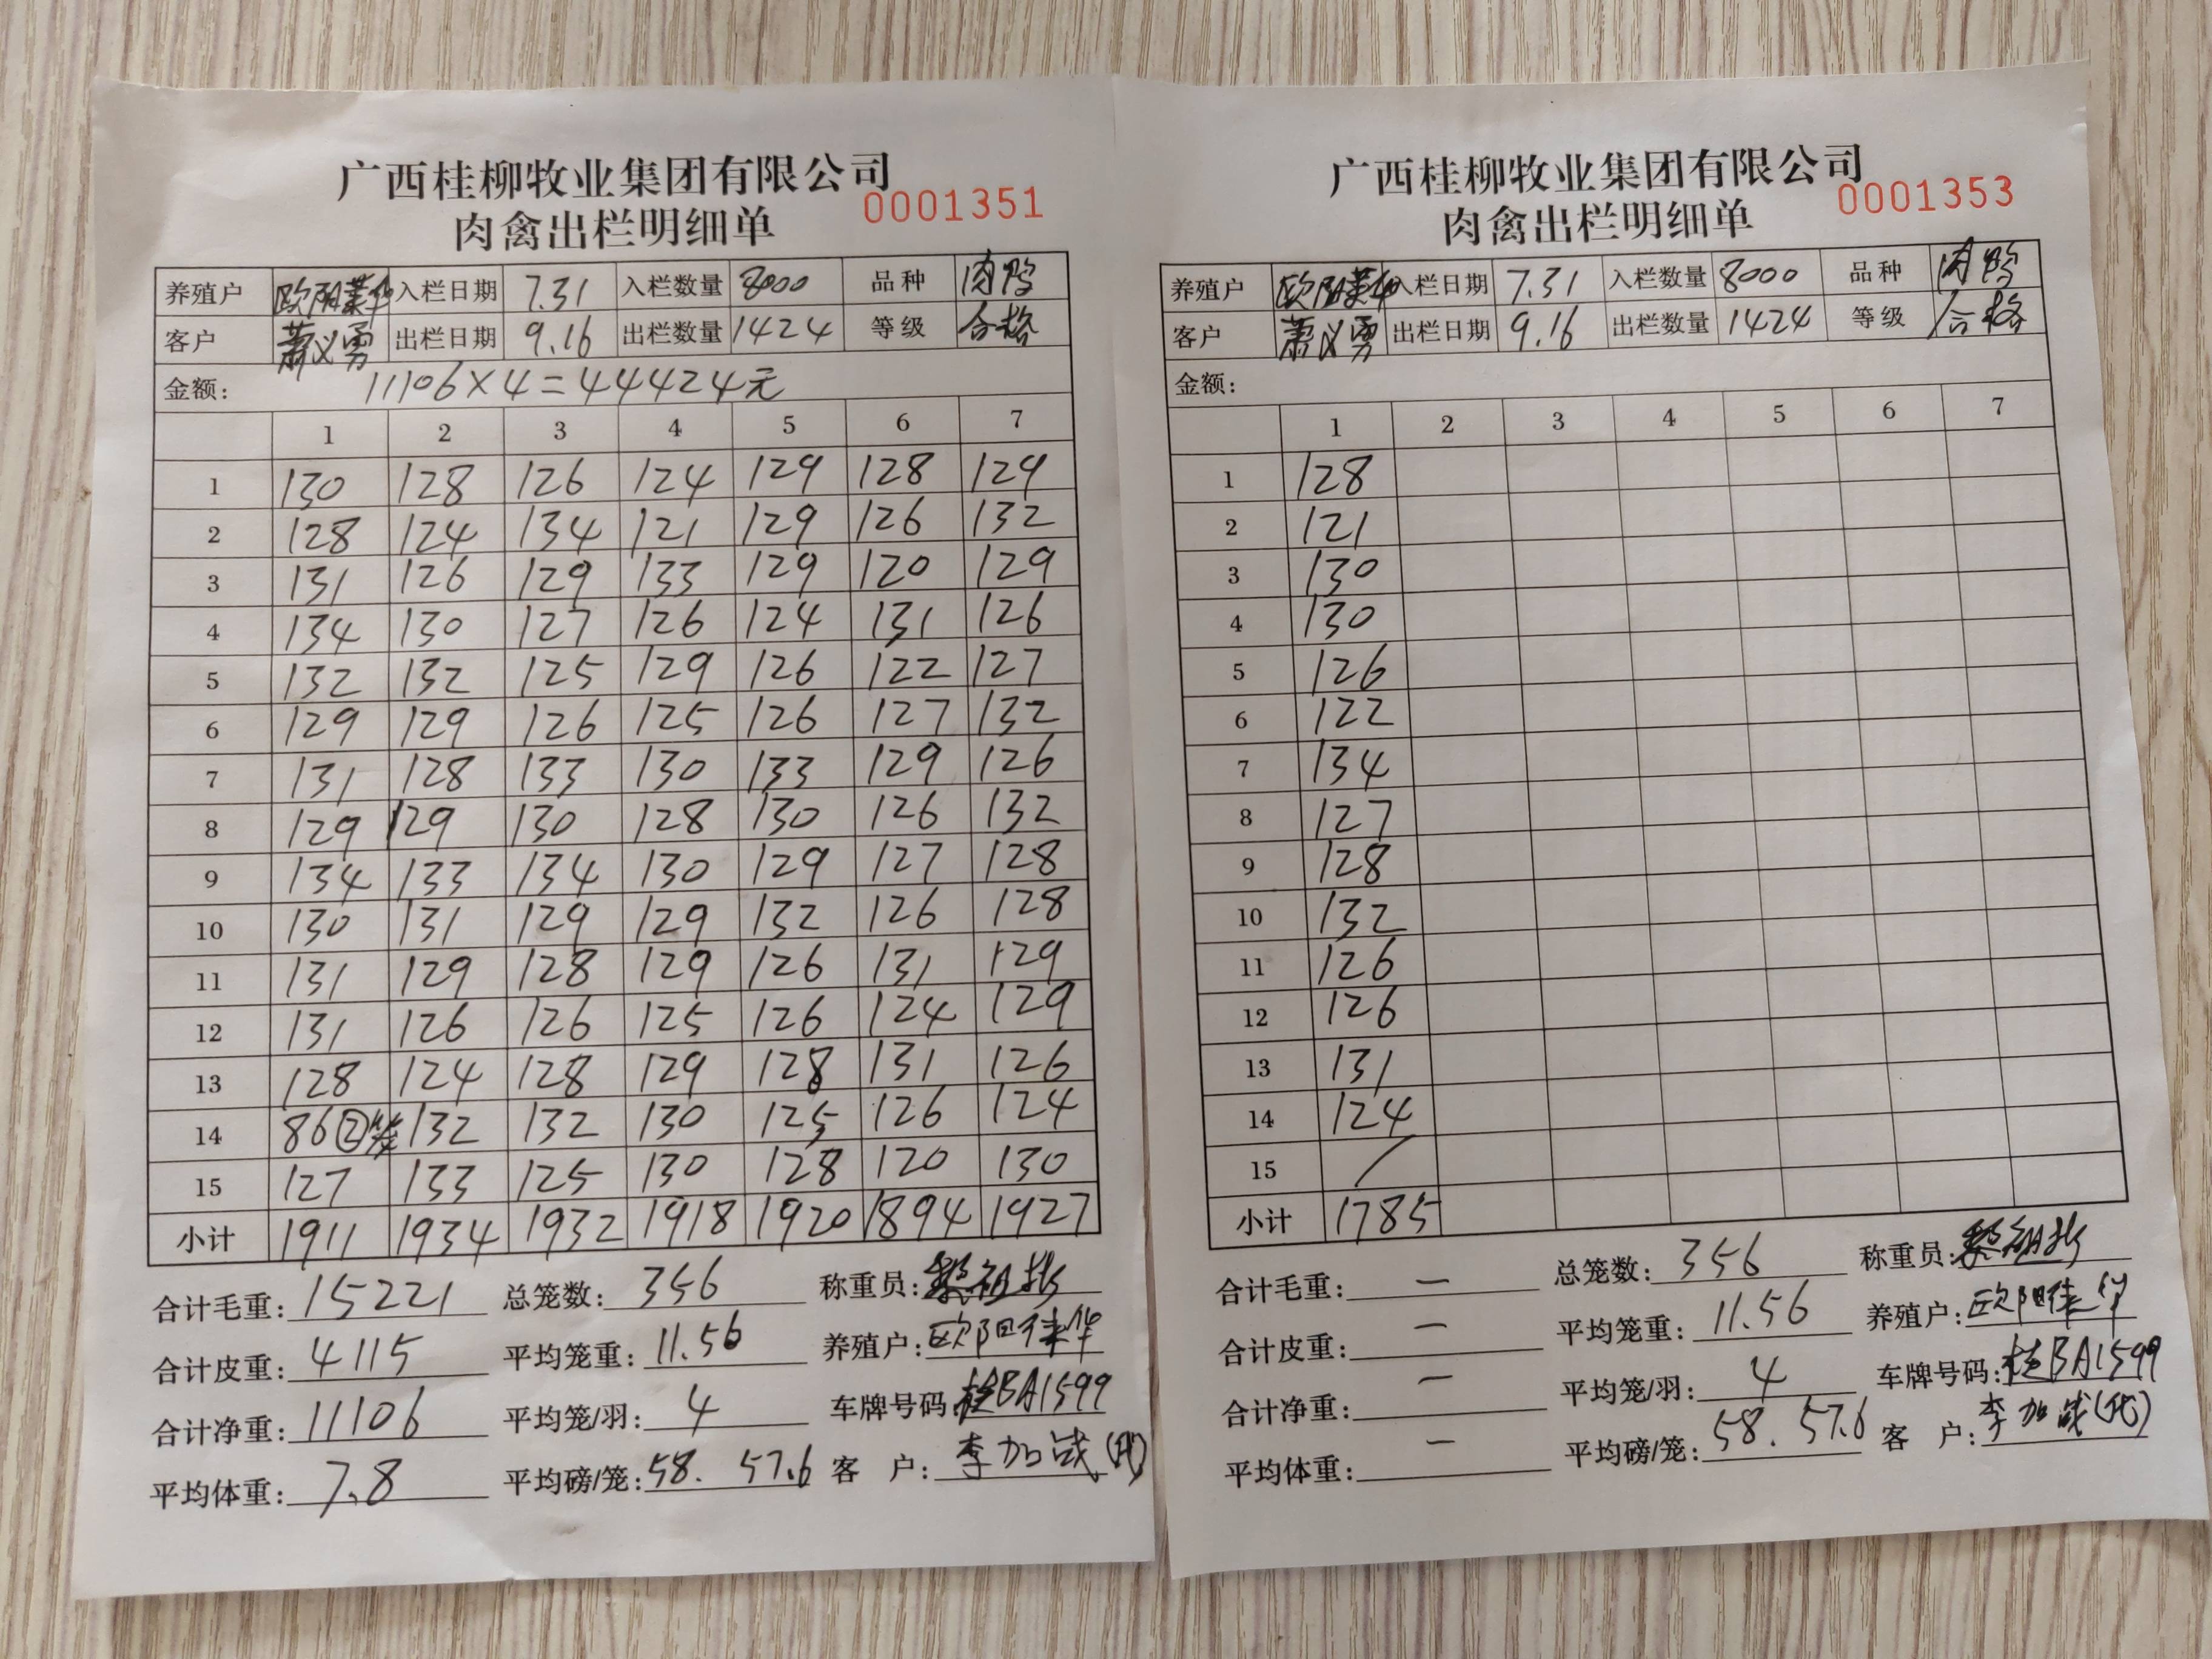 广西桂柳牧业集团有限公司
肉禽出栏明细单 0001351
养殖户 欧阳 入栏日期 7.31 入栏数量 8000 品种 肉鸭
客户 萧义勇 出栏日期 9.16 出栏数量 1424 等级 合格
金额: 11106×4=44424元
1 2 3 4 5 6 7
1 130 128 126 124 129 128 129
2 128 124 134 121 129 126 132
3 131 126 129 133 129 120 129
4 134 130 127 126 124 131 126
5 132 132 125 129 126 122 127
6 129 129 126 125 126 127 132
7 131 128 133 130 133 129 126
8 129 129 130 128 130 126 132
9 134 133 134 130 129 127 128
10 130 131 129 129 132 126 128
11 131 129 128 129 126 131 129
12 131 126 126 125 126 124 129
13 128 124 128 129 128 131 126
14 86②笼 132 132 130 125 126 124
15 127 133 125 130 128 120 130
小计 1911 1934 1932 1918 1920 1894 1927
合计毛重: 15221 总笼数: 356 称重员:
合计皮重: 4115 平均笼重: 11.56 养殖户: 欧阳
合计净重: 11106 平均笼/羽: 4 车牌号码: 桂BA1599
平均体重: 7.8 平均磅/笼: 58. 57.6 客 户: 李加战(代)
广西桂柳牧业集团有限公司
肉禽出栏明细单 0001353
养殖户 欧阳 入栏日期 7.31 入栏数量 8000 品种 肉鸭
客户 萧义勇 出栏日期 9.16 出栏数量 1424 等级 合格
金额:
1 2 3 4 5 6 7
1 128
2 121
3 130
4 130
5 126
6 122
7 134
8 127
9 128
10 132
11 126
12 126
13 131
14 124
15 /
小计 1785
合计毛重: — 总笼数: 356 称重员:
合计皮重: — 平均笼重: 11.56 养殖户: 欧阳
合计净重: — 平均笼/羽: 4 车牌号码: 桂BA1599
平均体重: — 平均磅/笼: 58. 57.6 客 户: 李加战(代)